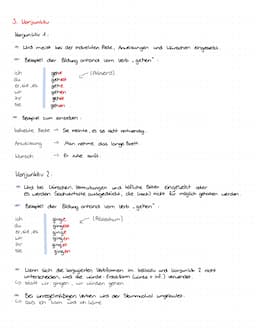 3. Konjunktiv
Konjunktiv 1:
→ Wird meist bei der indirekten Rede, Anweisungen und Wünschen eingesetzt.
→ Beispiel der Bildung anhand vom Verb „gehen“:
ich gehe (Präsens)
du gehest
er, sie, es gehe
wir gehen
ihr gehet
sie gehen
→ Beispiel zum einsetzen:
indirekte Rede → Sie meinte, es sei nicht notwendig.
Anweisung → Man nehme das lange Brett.
Wunsch → Er ruhe sanft.
Konjunktiv 2:
→ Wird bei Wünschen, Vermutungen und höfliche Bitten eingesetzt oder
es werden Sachverhalte ausgedrückt, die (noch) nicht für möglich gehalten werden.
→ Beispiel der Bildung anhand vom Verb „gehen“:
ich ginge (Präteritum)
du gingest
er, sie, es ginge
wir gingen
ihr ginget
sie gingen
→ Wenn sich die konjugierten Verbformen im Indikativ und Konjunktiv 2 nicht
unterscheiden, wird die würde-Ersatzform (würde + Inf.) verwendet.
statt wir gingen, wir würden gehen
→ Bei unregelmäßigen Verben wird der Stammvokal umgelautet.
aus ich kam wird ich käme